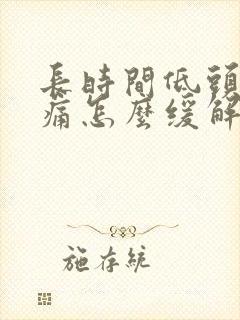 長時間低頭
痛怎麼緩解
施存統